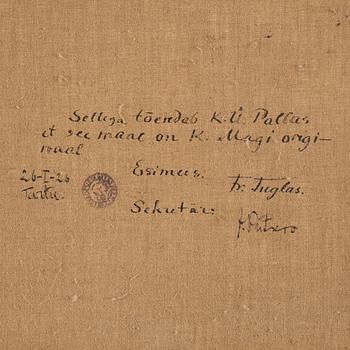 Sellega tõendab K.Ü. Pallas
et see maal on K. Magi origi-
naal
26-I-26
Tartu.
Esimees:
Fr. Tuglas.
Sekretär: